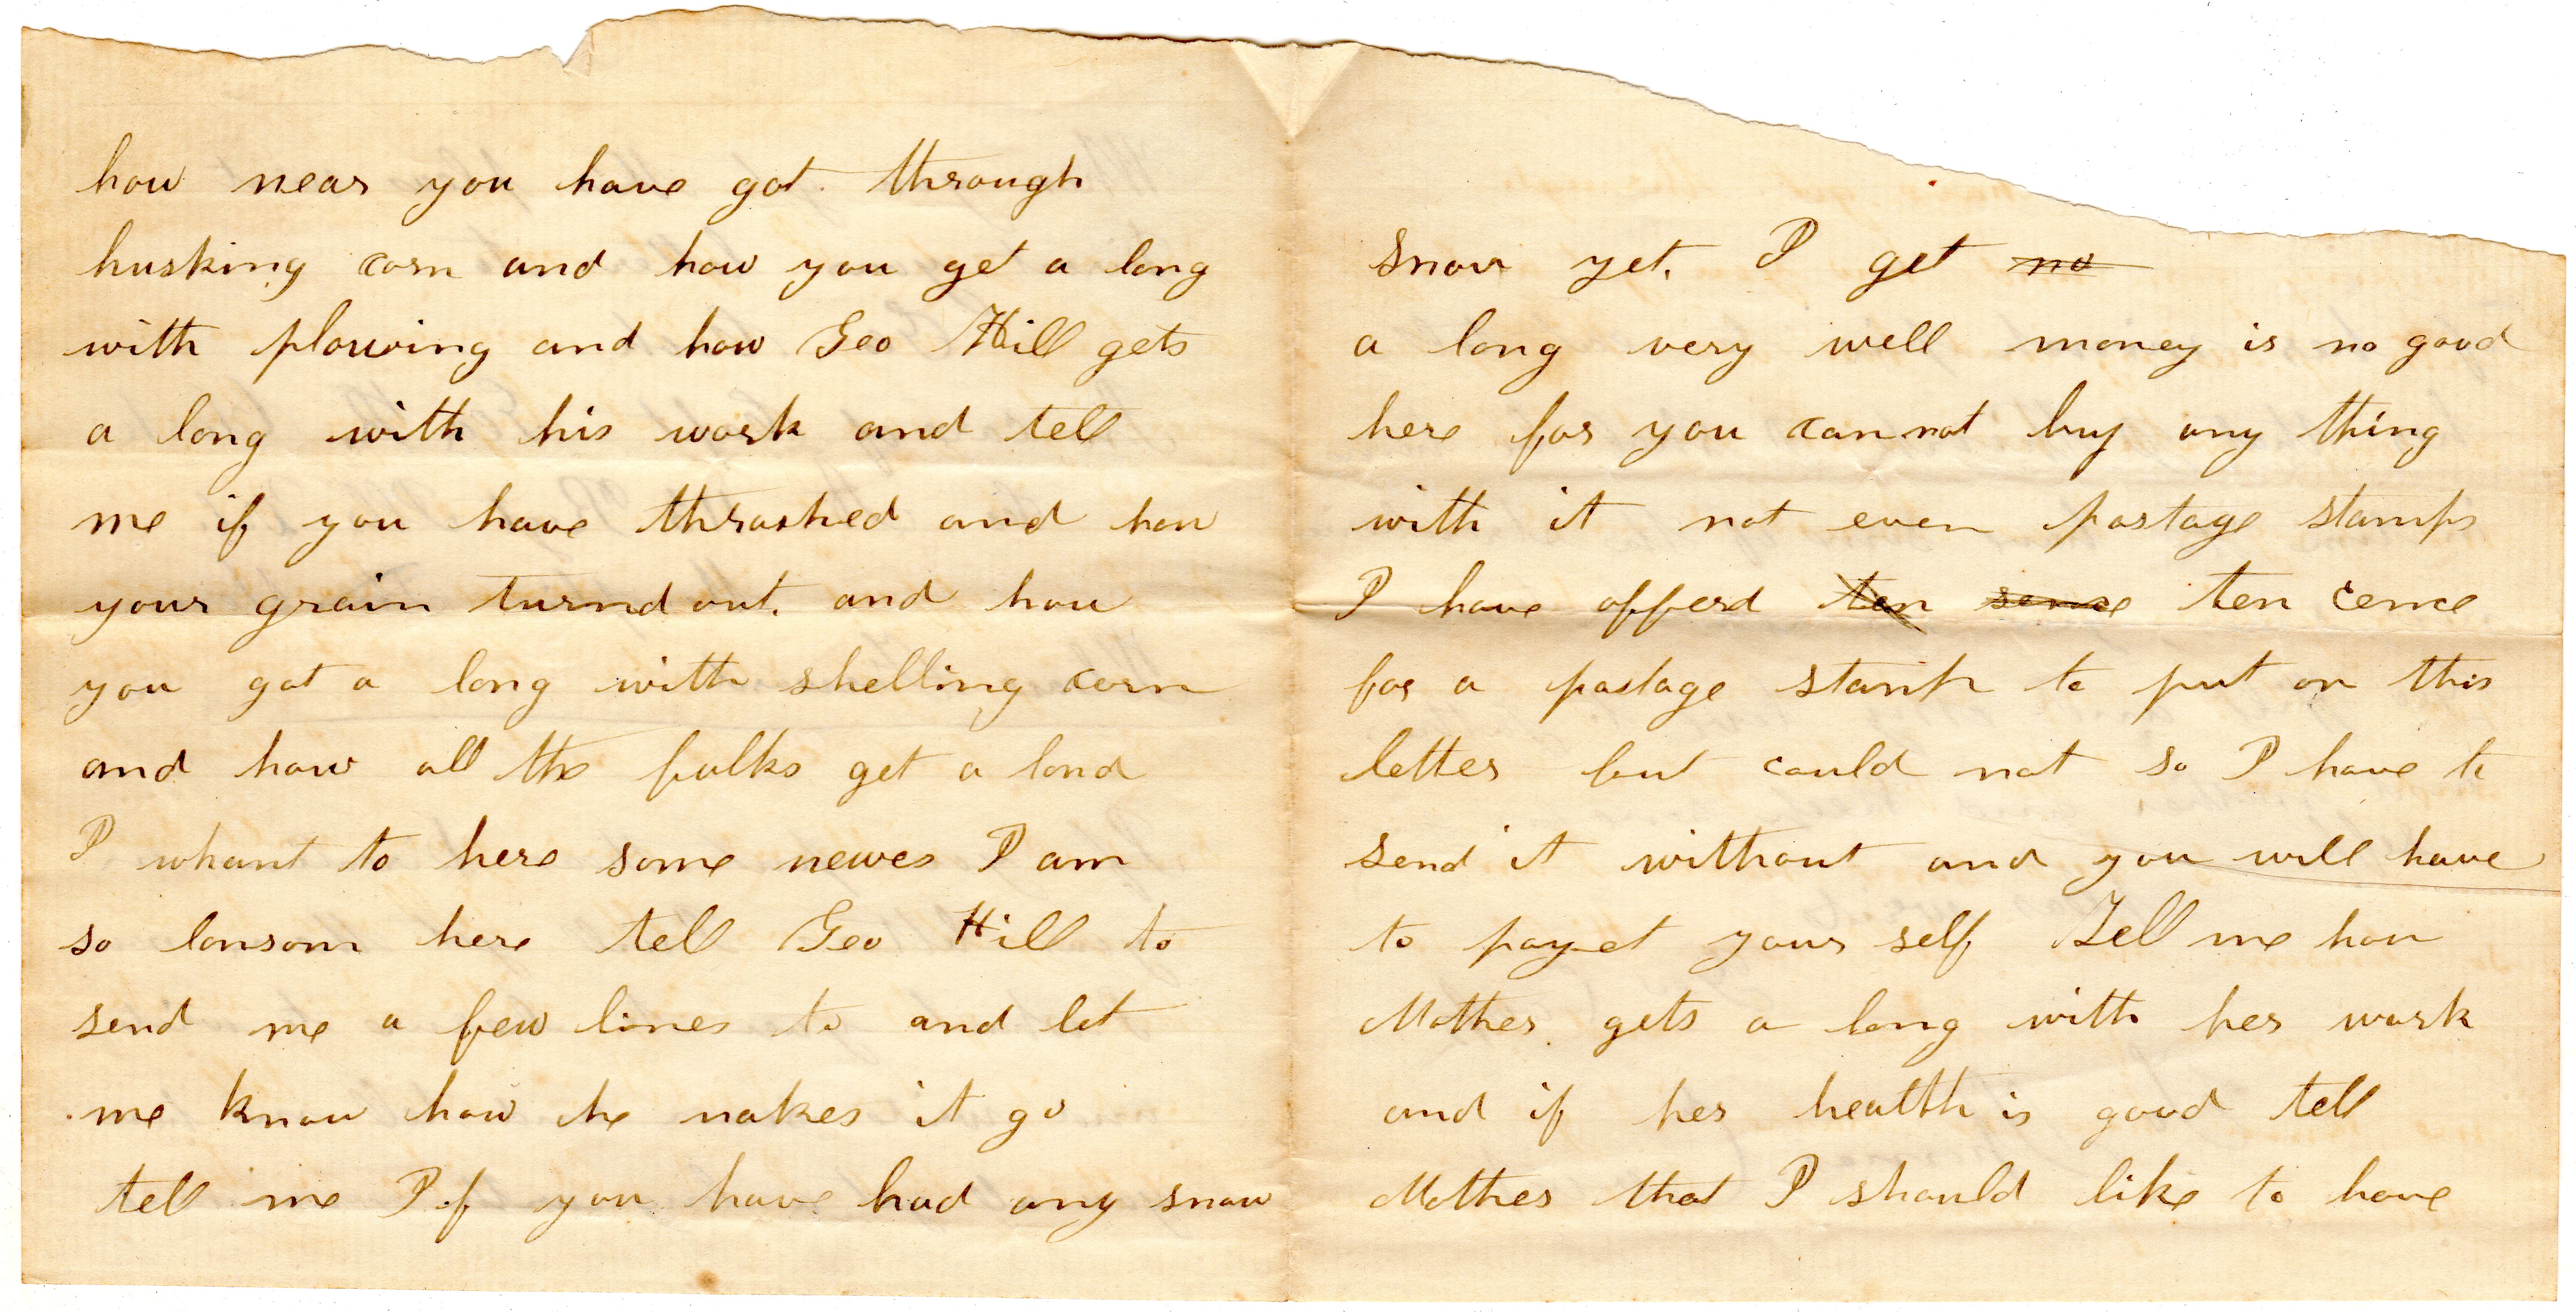 how near you have got through
husking corn and how you get a long
with plowing and how Geo Hill gets
a long with his work and tell
me if you have thrashed and how
your grain turnd out. and how
you got a long with shelling corn
and how all the fulks get a lond
I whant to here some newes I am
so lonsom here tell Geo Hill to
send me a few lines to and let
me know how he makes it go
tell me If you have had any snow
snow yet. I get no
a long very well money is no good
here for you cannot buy any thing
with it not even postage stamps
I have offerd ten sence ten cence
for a postage stamp to put on this
letter but could not so I have to
send it without and you will have
to pay et your self Tell me how
Mother gets a long with her work
and if her health is good tell
Mother that I should like to have